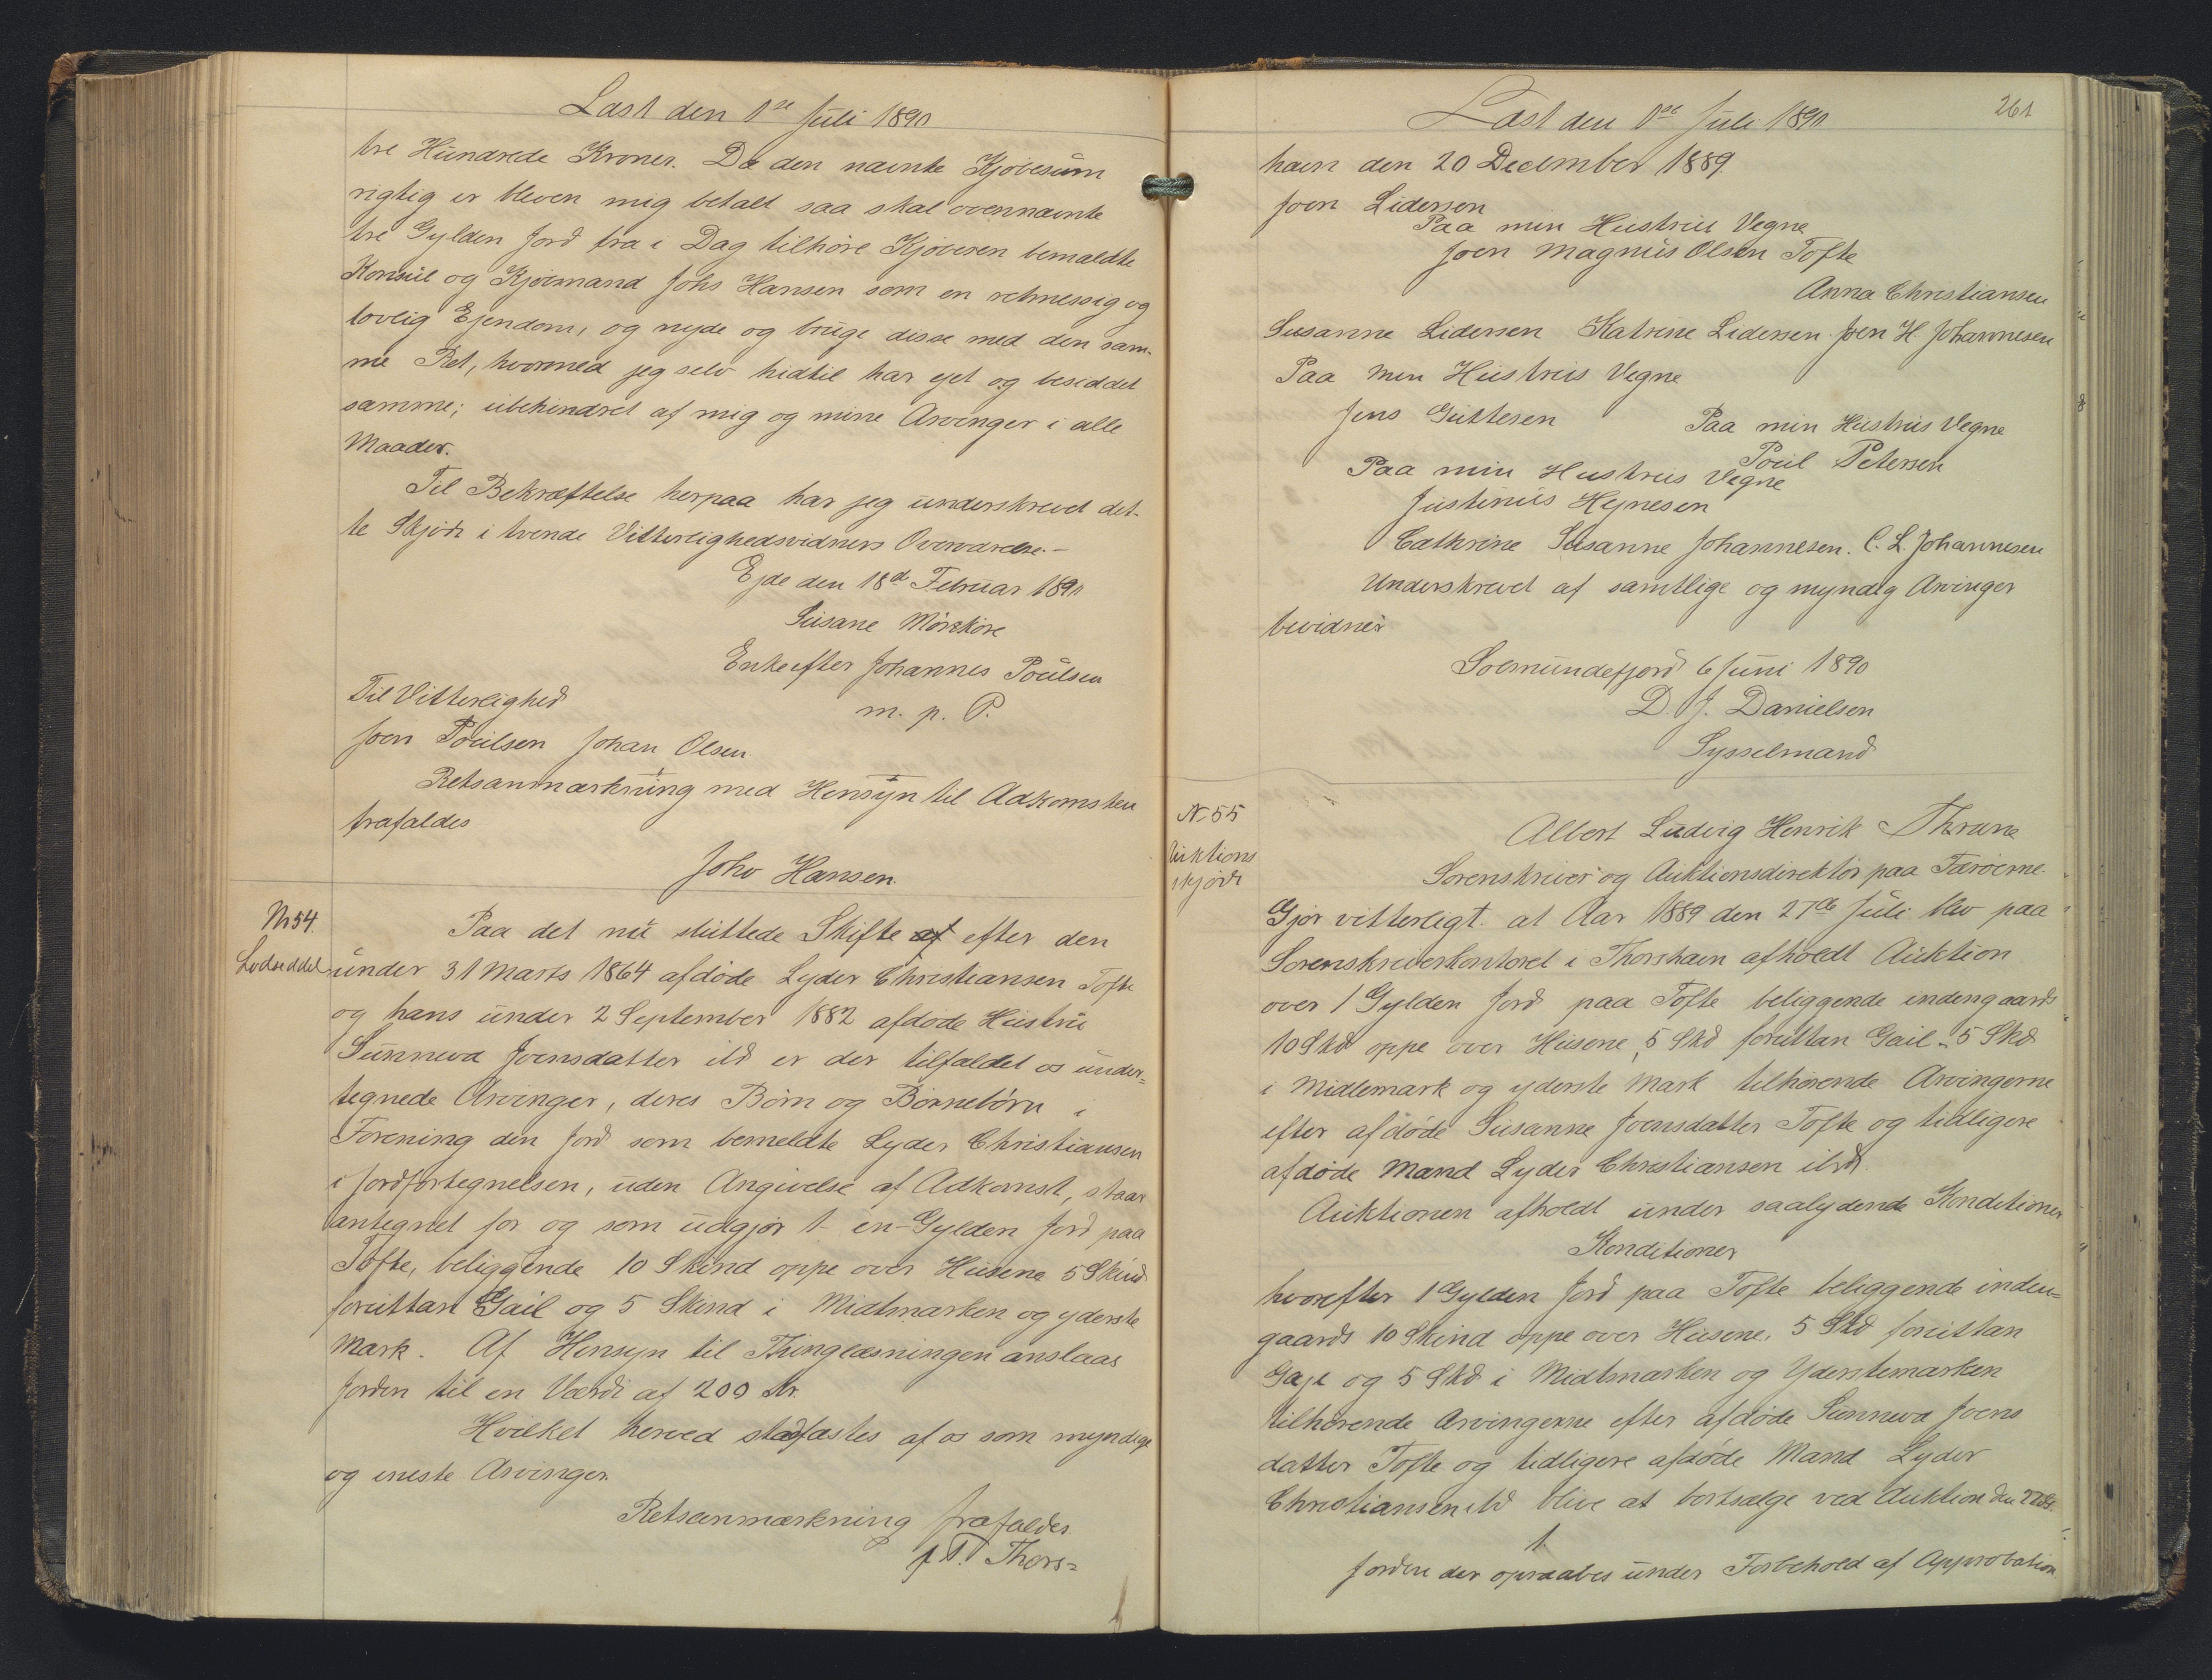 Læst den 1ste Juli 1890
tre Hundrede Kroner. Da den nævnte Kjøbesum
rigtig er bleven mig betalt saa skal ovennævnte
tre Gylden Jord fra i Dag tilhøre Kjøberen bemældte
Konsul og Kjøbmand Johs Hansen som en retmessig og
lovlig Ejendom, og nyde og bruge disse med den sam-
me Ret, hvormed jeg selv hidtil har ejet og besiddet
samme; ubehindret af mig og mine Arvinger i alle
Maader.
Til Bekræftelse herpaa har jeg underskrevet det-
te Skjøde i tvende Vitterlighedsvidners Overværelse.-
Ejde den 18de Februar 1890
Susane Mørskøre
Enke efter Johannes Poulsen
m. p. P.
Til Vitterlighed
Joen Poulsen Johan Olsen
Retsanmærkning med Hensyn til Adkomsten
frafaldes
Johs Hansen.
Nr 54.
Lodseddel
Paa det nu sluttede Skifte af efter den
under 31 Marts 1864 afdøde Lyder Christiansen Tofte
og hans under 2 September 1882 afdøde Hustru
Sunneva Joensdatter ibd er der tilfaldet os under=
tegnede Arvinger, deres Børn og Børnebørn i
Forening den Jord som bemeldte Lyder Christiansen
i Jordfortegnelsen, uden Angivelse af Adkomst, staar
antegnet for og som udgjør 1- en-Gylden Jord paa
Tofte, beliggende 10 Skind oppe over Husene 5 Skind
foruttan Gail og 5 Skind i Midtmarken og yderste
Mark. Af Hensyn til Thinglæsningen anslaas
Jorden til en Værdi af 200 Kr.
Hvilket herved stadfæstes af os som myndige
og eneste Arvinger.
Retsanmærkning frafaldes.
p.T. Thors=
Læst den 1ste Juli 1890
261
havn den 20 December 1889.
Joen Lidersen
Paa min Hustrus Vegne
Joen Magnus Olsen Tofte
Anna Christiansen
Susanne Lidersen Katrine Lidersen. Joen H. Johannesen
Paa min Hustrus Vegne
Jens Guttesen
Paa min Hustrus Vegne
Poul Petersen
Paa min Hustrus Vegne
Justinus Hejnesen
Cathrine Susanne Johannesen. C. L. Johannesen
Underskrevet af samtlige og myndig Arvinger
bevidner
Solmundefjord 6 Juni 1890
D. J. Danielsen
Sysselmand
N. 55
Auktions
skjøde
Albert Ludvig Henrik Thrane
Sorenskriver og Auktionsdirektør paa Færøerne.
Gjør vitterligt. at Aar 1889 den 27de Juli blev paa
Sorenskriverkontoret i Thorshavn afholdt Auktion
over 1 Gylden Jord paa Tofte beliggende indengaards
10 Skd oppe over Husene, 5 Skd foruttan Gail - 5 Skd
i Midlemark og yderste Mark tilhørende Arvingerne
efter afdøde Susanne Joensdatter Tofte og tidligere
afdøde Mand Lyder Christiansen ibd.
Auktionen afholdt under saalydende Konditioner
Konditioner
hvorefter 1 Gylden Jord paa Tofte beliggende inden=
gaards 10 Skind oppe over Husene, 5 Skd foruttan
Gaje og 5 Skd i Midtmarken og Yderstemarken
tilhørende Arvingerne efter afdøde Sunneva Joens
datter Tofte og tidligere afdøde Mand Lyder
Christiansen ibd blive at bortsælge ved Auktion den 27 ds.
1.
Jorden der opraabes under Forbehold af Approbation